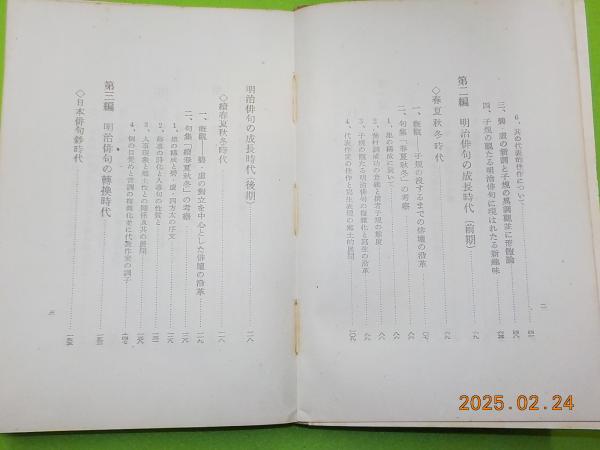 6、其の代表的佳作について
三、碧・虚の新調と子規の風調観並に形體論
四、子規の觀たる明治俳句に現はれたる新趣味
第二編 明治俳句の成長時代(前期)
◇春夏秋冬時代
一、概觀——子規の沒するまでの俳壇の沿革
二、句集「春夏秋冬」の考察
1、集の構成に就いて
2、蕪村調成功の意義と撰者子規の態度
3、子規の觀たる明治俳句の複雜化と寫生の沿革
4、代表作家の佳作と寫生表現の鄕土的展開
二
明治俳句の成長時代(後期)
◇續春夏秋冬時代
一、概觀——碧・虚の對立を中心とした俳壇の沿革
二、句集「續春夏秋冬」の考察
1、集の構成と碧・虚・四方太の序文
2、敍事の詩化と人事句の性質と
3、人事現象と地方性との關係及其の展開
4、個の目覺めと音調の複雜化並に代表作家の調子
第三編 明治俳句の轉換時代
◇日本俳句鈔時代
三
2025.02.24